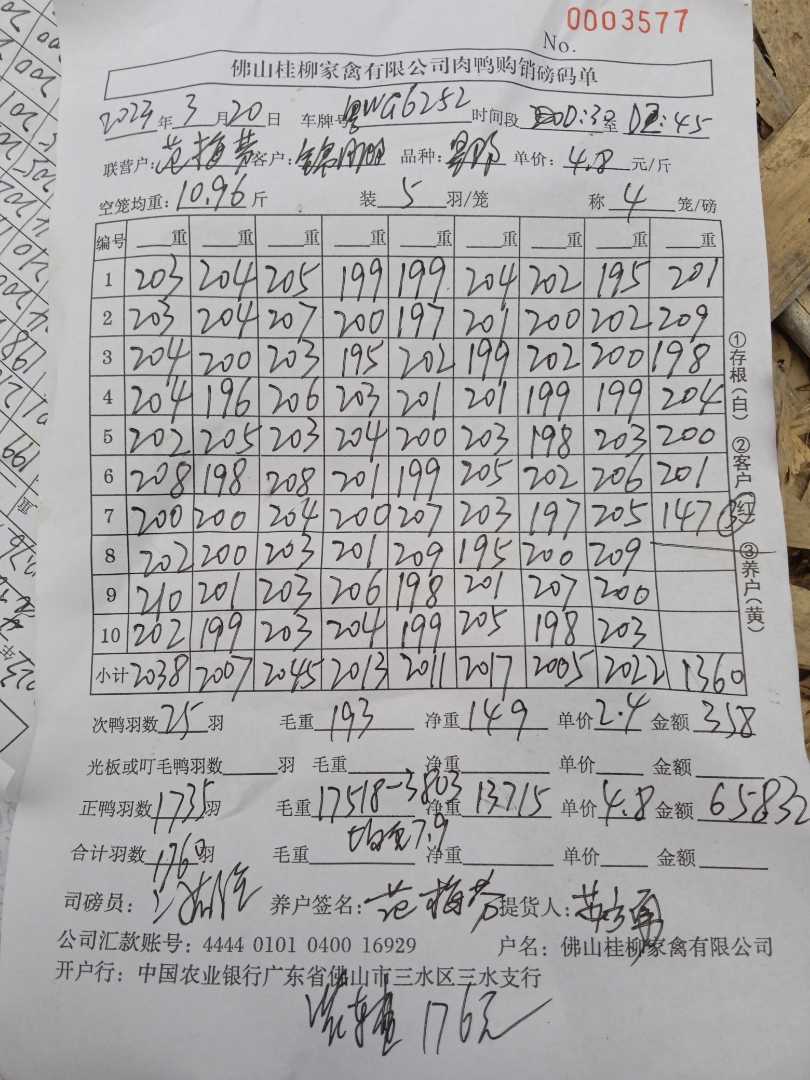 0003577
No.
佛山桂柳家禽有限公司肉鸭购销磅码单
2023年3月20日 车牌号粤WG6252 时间段 至
联营户:范梅芬 客户: 品种: 单价:4.8元/斤
空笼均重:10.96斤 装5羽/笼 称4笼/磅
编号 重 重 重 重 重 重 重 重 重
1 203 204 205 199 199 204 202 195 201
2 203 204 207 200 197 201 200 202 209
3 204 200 203 195 202 199 202 200 198
4 204 196 206 203 201 201 199 199 204
5 202 205 203 204 200 203 198 203 200
6 208 198 208 201 199 205 202 206 201
7 200 200 204 200 207 203 197 205 147
8 202 200 203 201 209 195 200 209
9 210 201 203 206 198 201 207 200
10 202 199 203 204 199 205 198 203
小计 2038 2007 2045 2013 2011 2017 2005 2022 1360
①存根(白) ②客户(红) ③养户(黄)
次鸭羽数25羽 毛重193 净重149 单价2.4 金额358
光板或叮毛鸭羽数 羽 毛重 净重 单价 金额
正鸭羽数1735羽 毛重17518-3803 净重13715 单价4.8 金额65832
均重7.9
合计羽数1760羽 毛重 净重 单价 金额
司磅员: 养户签名:范梅芬 提货人:
公司汇款账号:4444 0101 0400 16929 户名:佛山桂柳家禽有限公司
开户行:中国农业银行广东省佛山市三水区三水支行
176元